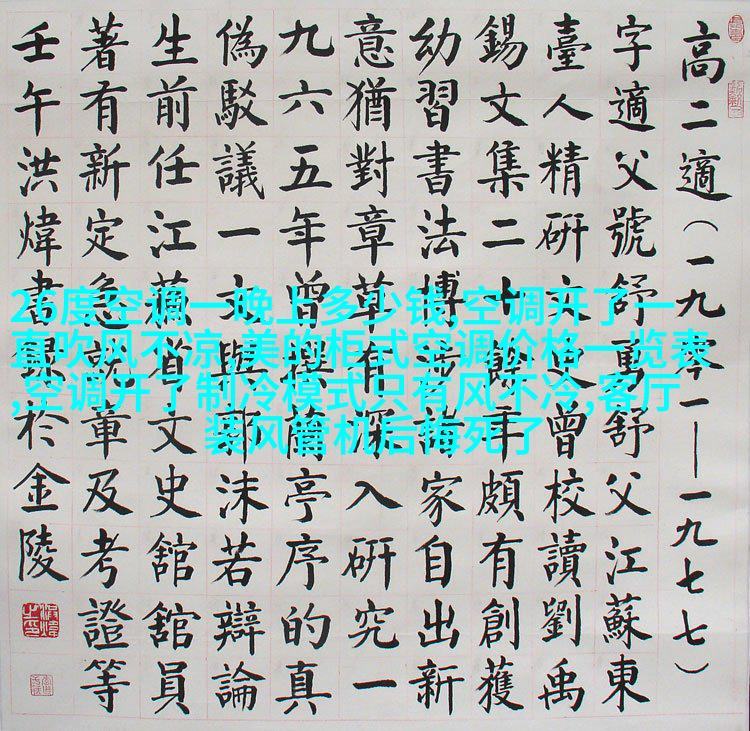 高二適（一九零一——一九七七）
字適父號舒舒父江蘇東
臺人精研文史曾校讀劉禹
錫文集二十餘年頗有創獲
幼習書法博涉諸家自出新
意猶對章草有深入研究一
九六五年曾撰蘭亭序的真
偽駁議一文與郭沫若辯論
生前任江蘓省文史舘舘員
著有新定急就章及考證等
壬午洪煒書錄於金陵
26度空调一晚上多少钱,空调开了一
直吹风不凉,美的柜式空调价格一览表
,空调开了制冷模式只有风不冷,客厅
装风管机后悔死了